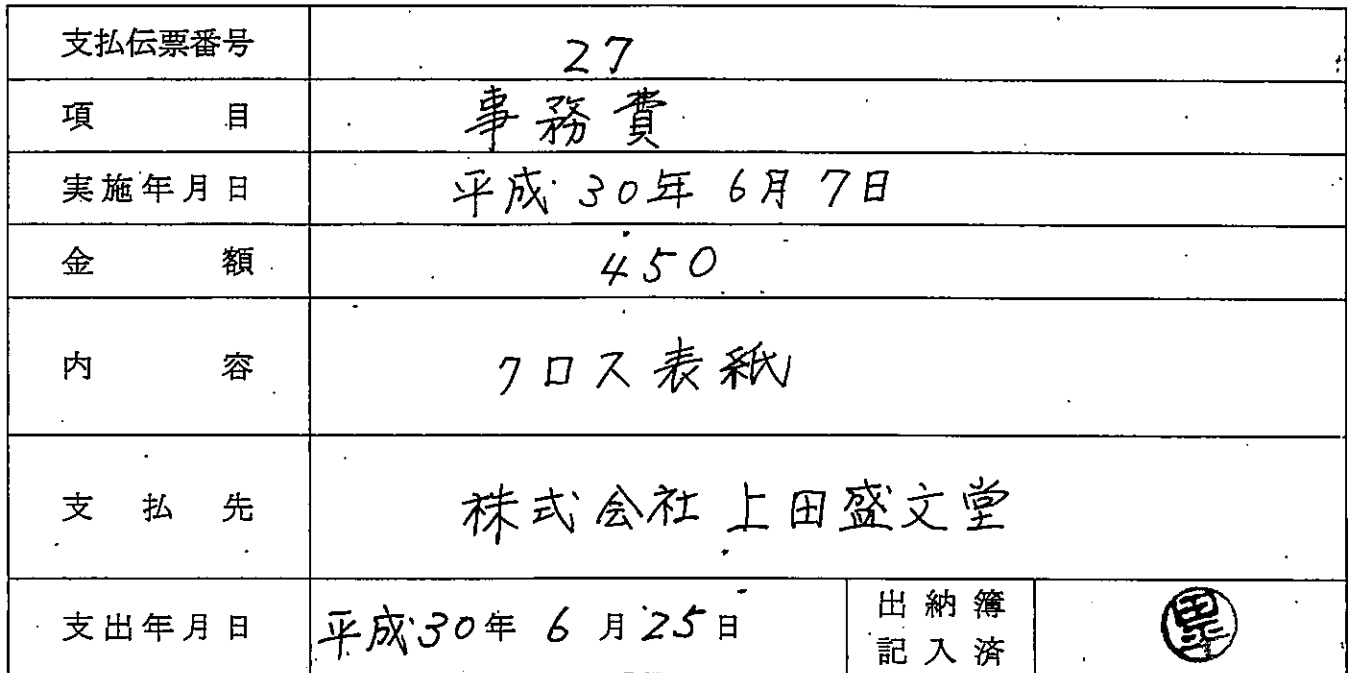 支払伝票番号 27
項目 事務費
実施年月日 平成30年6月7日
金額 450
内容 クロス表紙
支払先 株式会社上田盛文堂
支出年月日 平成30年6月25日 出納簿
記入済